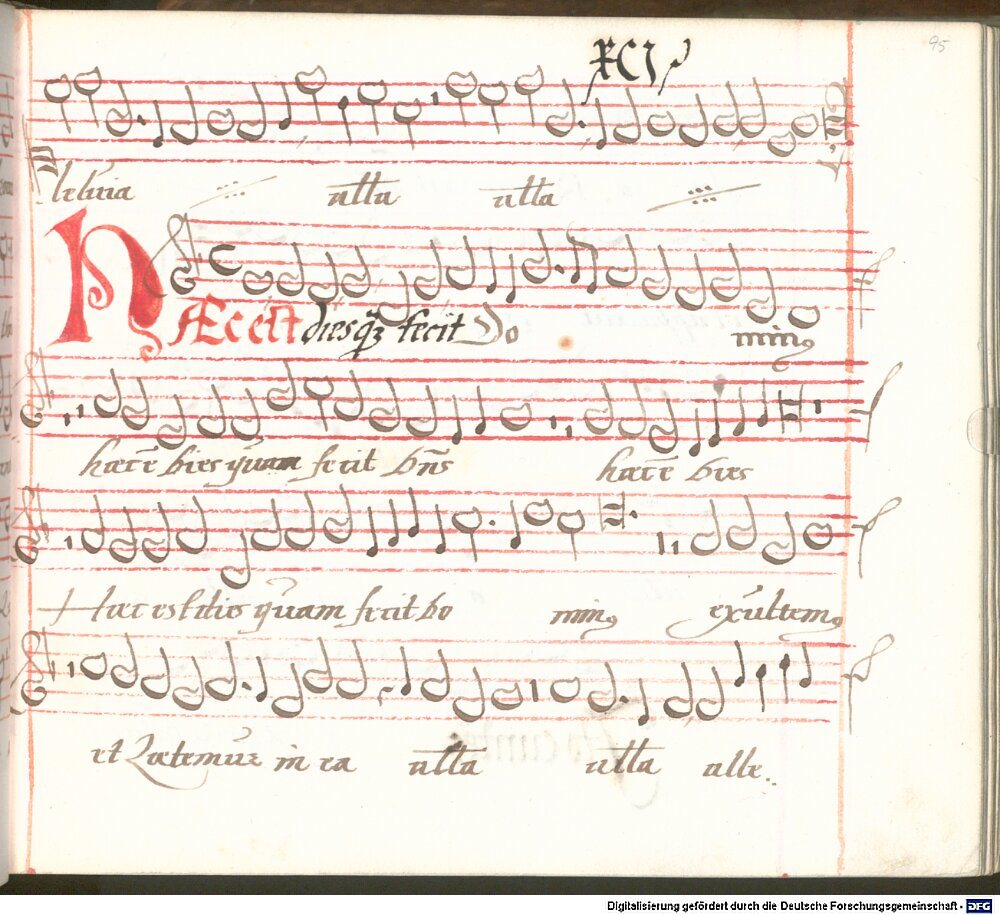 95
XCI
leluia alla alla
HÆC est dies qz fecit Do minꝰ
hæc ē dies quam fecit dn̄s hæc ē dies
Hæc est dies quam fecit do minꝰ exultemꝰ
et Lætemur in ea alla alla alle
Digitalisierung gefördert durch die Deutsche Forschungsgemeinschaft - DFG